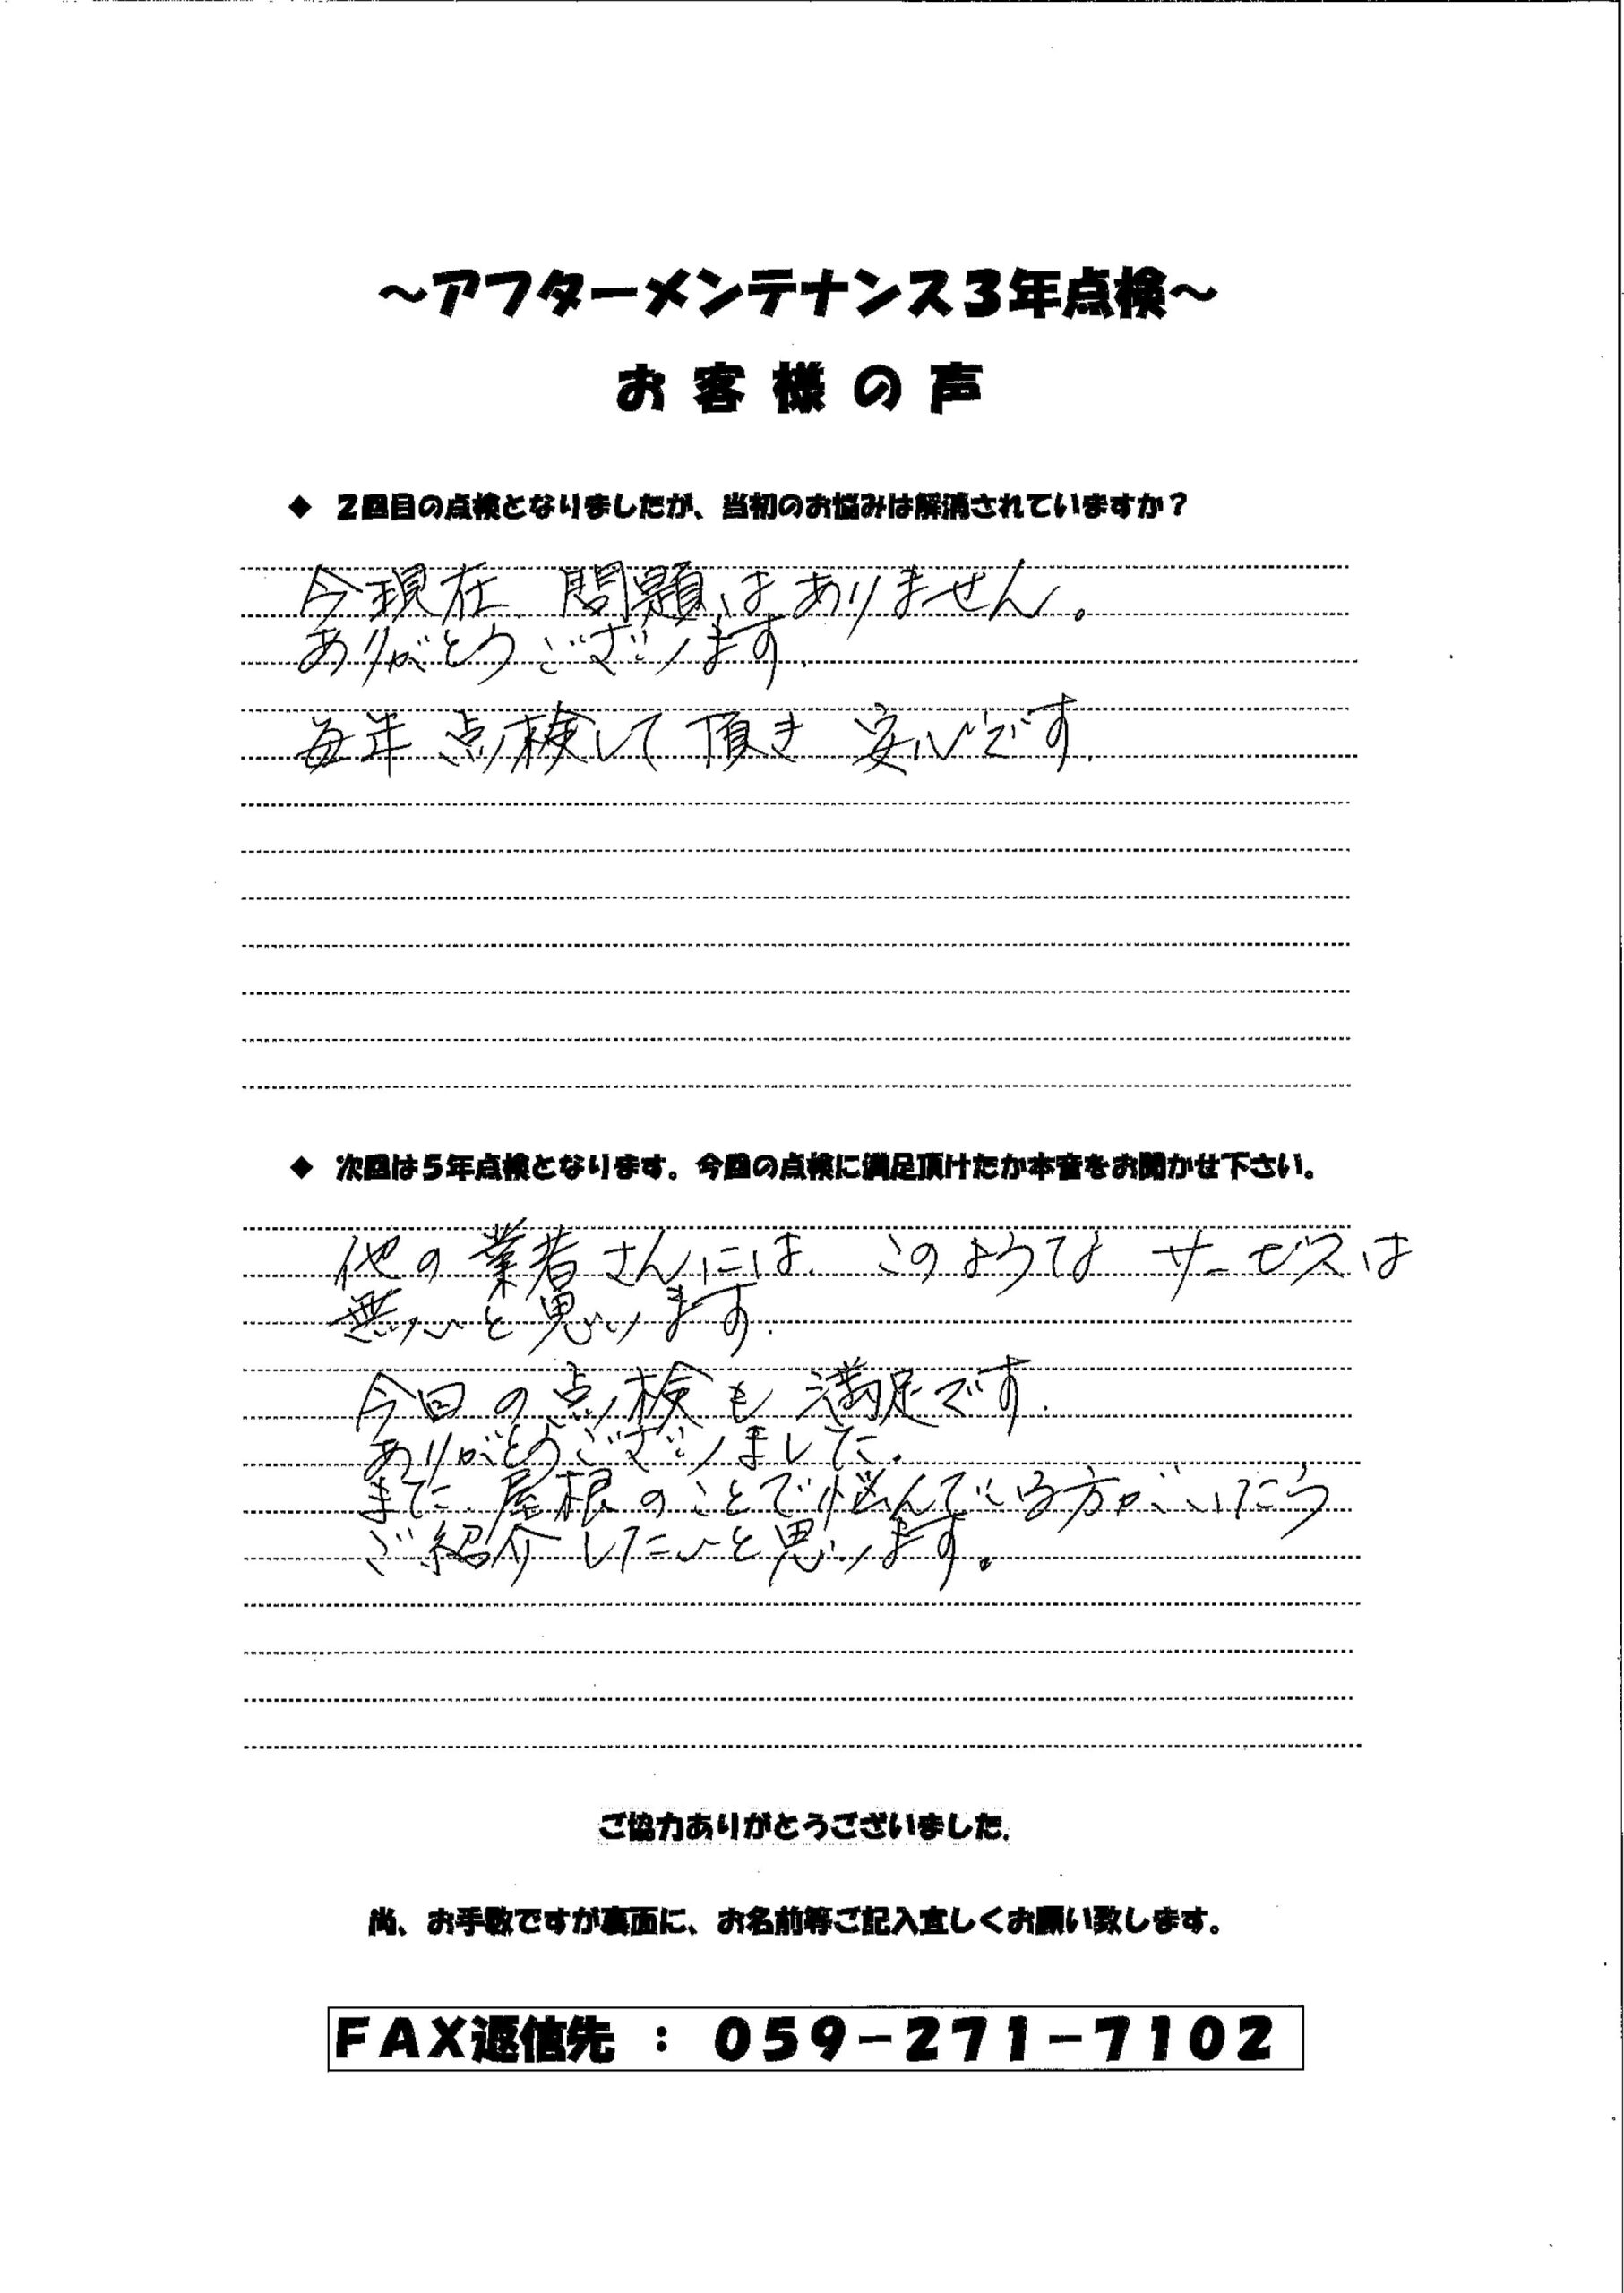 ～アフターメンテナンス３年点検～
お客様の声
◆ ２回目の点検となりましたが、当初のお悩みは解消されていますか？
今現在、問題はありません。
ありがとうございます.
毎年点検して頂き 安心です.
◆ 次回は５年点検となります。今回の点検に満足頂けたか本音をお聞かせ下さい。
他の業者さんには、このような サービスは
無いと思います.
今回の点検も満足です.
ありがとうございました.
また、屋根のことで悩んでいる方がいたら
ご紹介したいと思います。
ご協力ありがとうございました。
尚、お手数ですが裏面に、お名前等ご記入宜しくお願い致します。
ＦＡＸ返信先 ： ０５９－２７１－７１０２